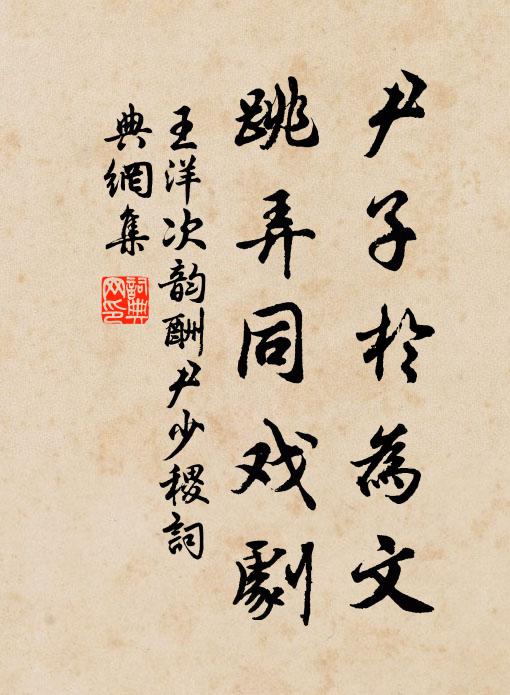 尹子於為文
跳弄同戏劇
王洋次韵酬尹少稷詞
典網集
詞典
网印